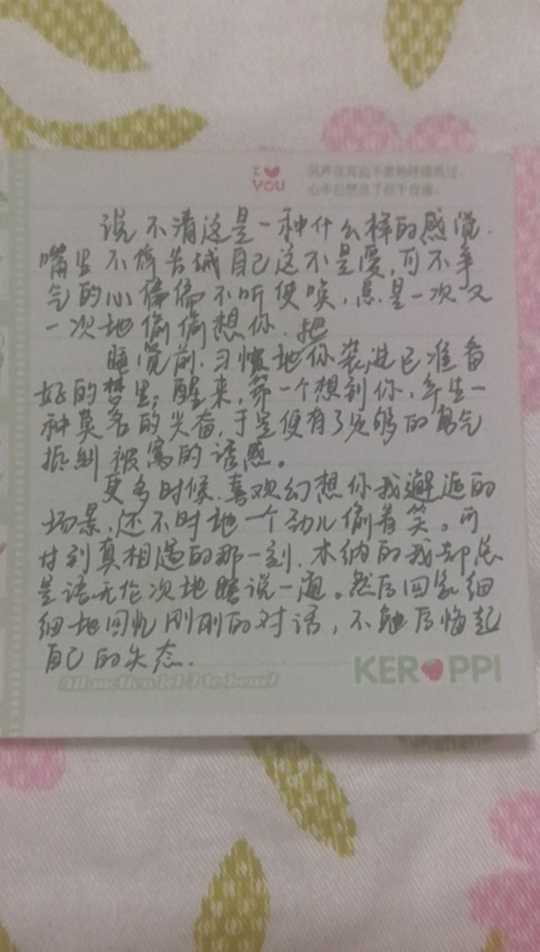 I
YOU
说不清这是一种什么样的感觉.
嘴里不停告诫自己这不是爱,可不争
气的心偏偏不听使唤,总是一次又
一次地偷偷想你.把
睡觉前.习惯地你装进已准备
好的梦里;醒来,第一个想到你,产生一
种莫名的兴奋,于是便有了足够的勇气
拒绝被窝的诱惑。
更多时候.喜欢幻想你我邂逅的
场景,还不时地一个劲儿偷着笑。可
付到真相遇的那一刻.木纳的我却总
是语无伦次地瞎说一通。然后回家细
细地回忆刚刚的对话,不觉后悔起
自己的失态.
KER PPI